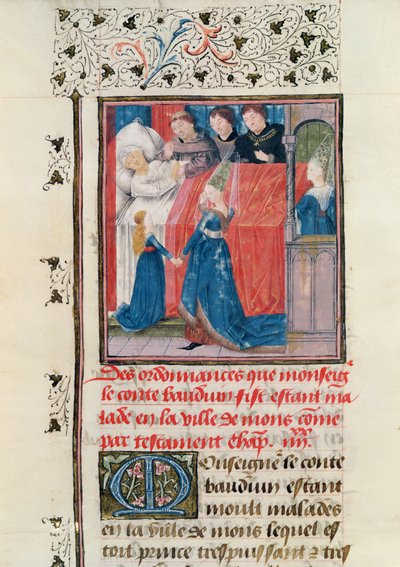 Des ordonnances que monseig
le conte bauduin fist estant ma
lade en la ville de mons cõme
par testament Chap. iiii.
Monseignẽ le conte
bauduin estant
moult malades
en la ville de mons lequel es
toit prince trespuissant ⁊ tres